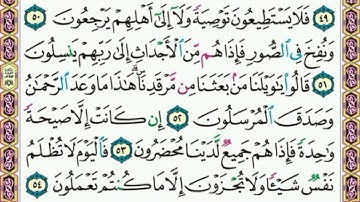 ٤٩ فَلَا يَسْتَطِيعُونَ تَوْصِيَةً وَلَآ إِلَىٰٓ أَهْلِهِمْ يَرْجِعُونَ ٥٠
وَنُفِخَ فِى ٱلصُّورِ فَإِذَا هُم مِّنَ ٱلْأَجْدَاثِ إِلَىٰ رَبِّهِمْ يَنسِلُونَ
٥١ قَالُوا۟ يَٰوَيْلَنَا مَنۢ بَعَثَنَا مِن مَّرْقَدِنَا ۜ ۗ هَٰذَا مَا وَعَدَ ٱلرَّحْمَٰنُ
وَصَدَقَ ٱلْمُرْسَلُونَ ٥٢ إِن كَانَتْ إِلَّا صَيْحَةً
وَٰحِدَةً فَإِذَا هُمْ جَمِيعٌ لَّدَيْنَا مُحْضَرُونَ ٥٣ فَٱلْيَوْمَ لَا تُظْلَمُ
نَفْسٌ شَيْـًٔا وَلَا تُجْزَوْنَ إِلَّا مَا كُنتُمْ تَعْمَلُونَ ٥٤